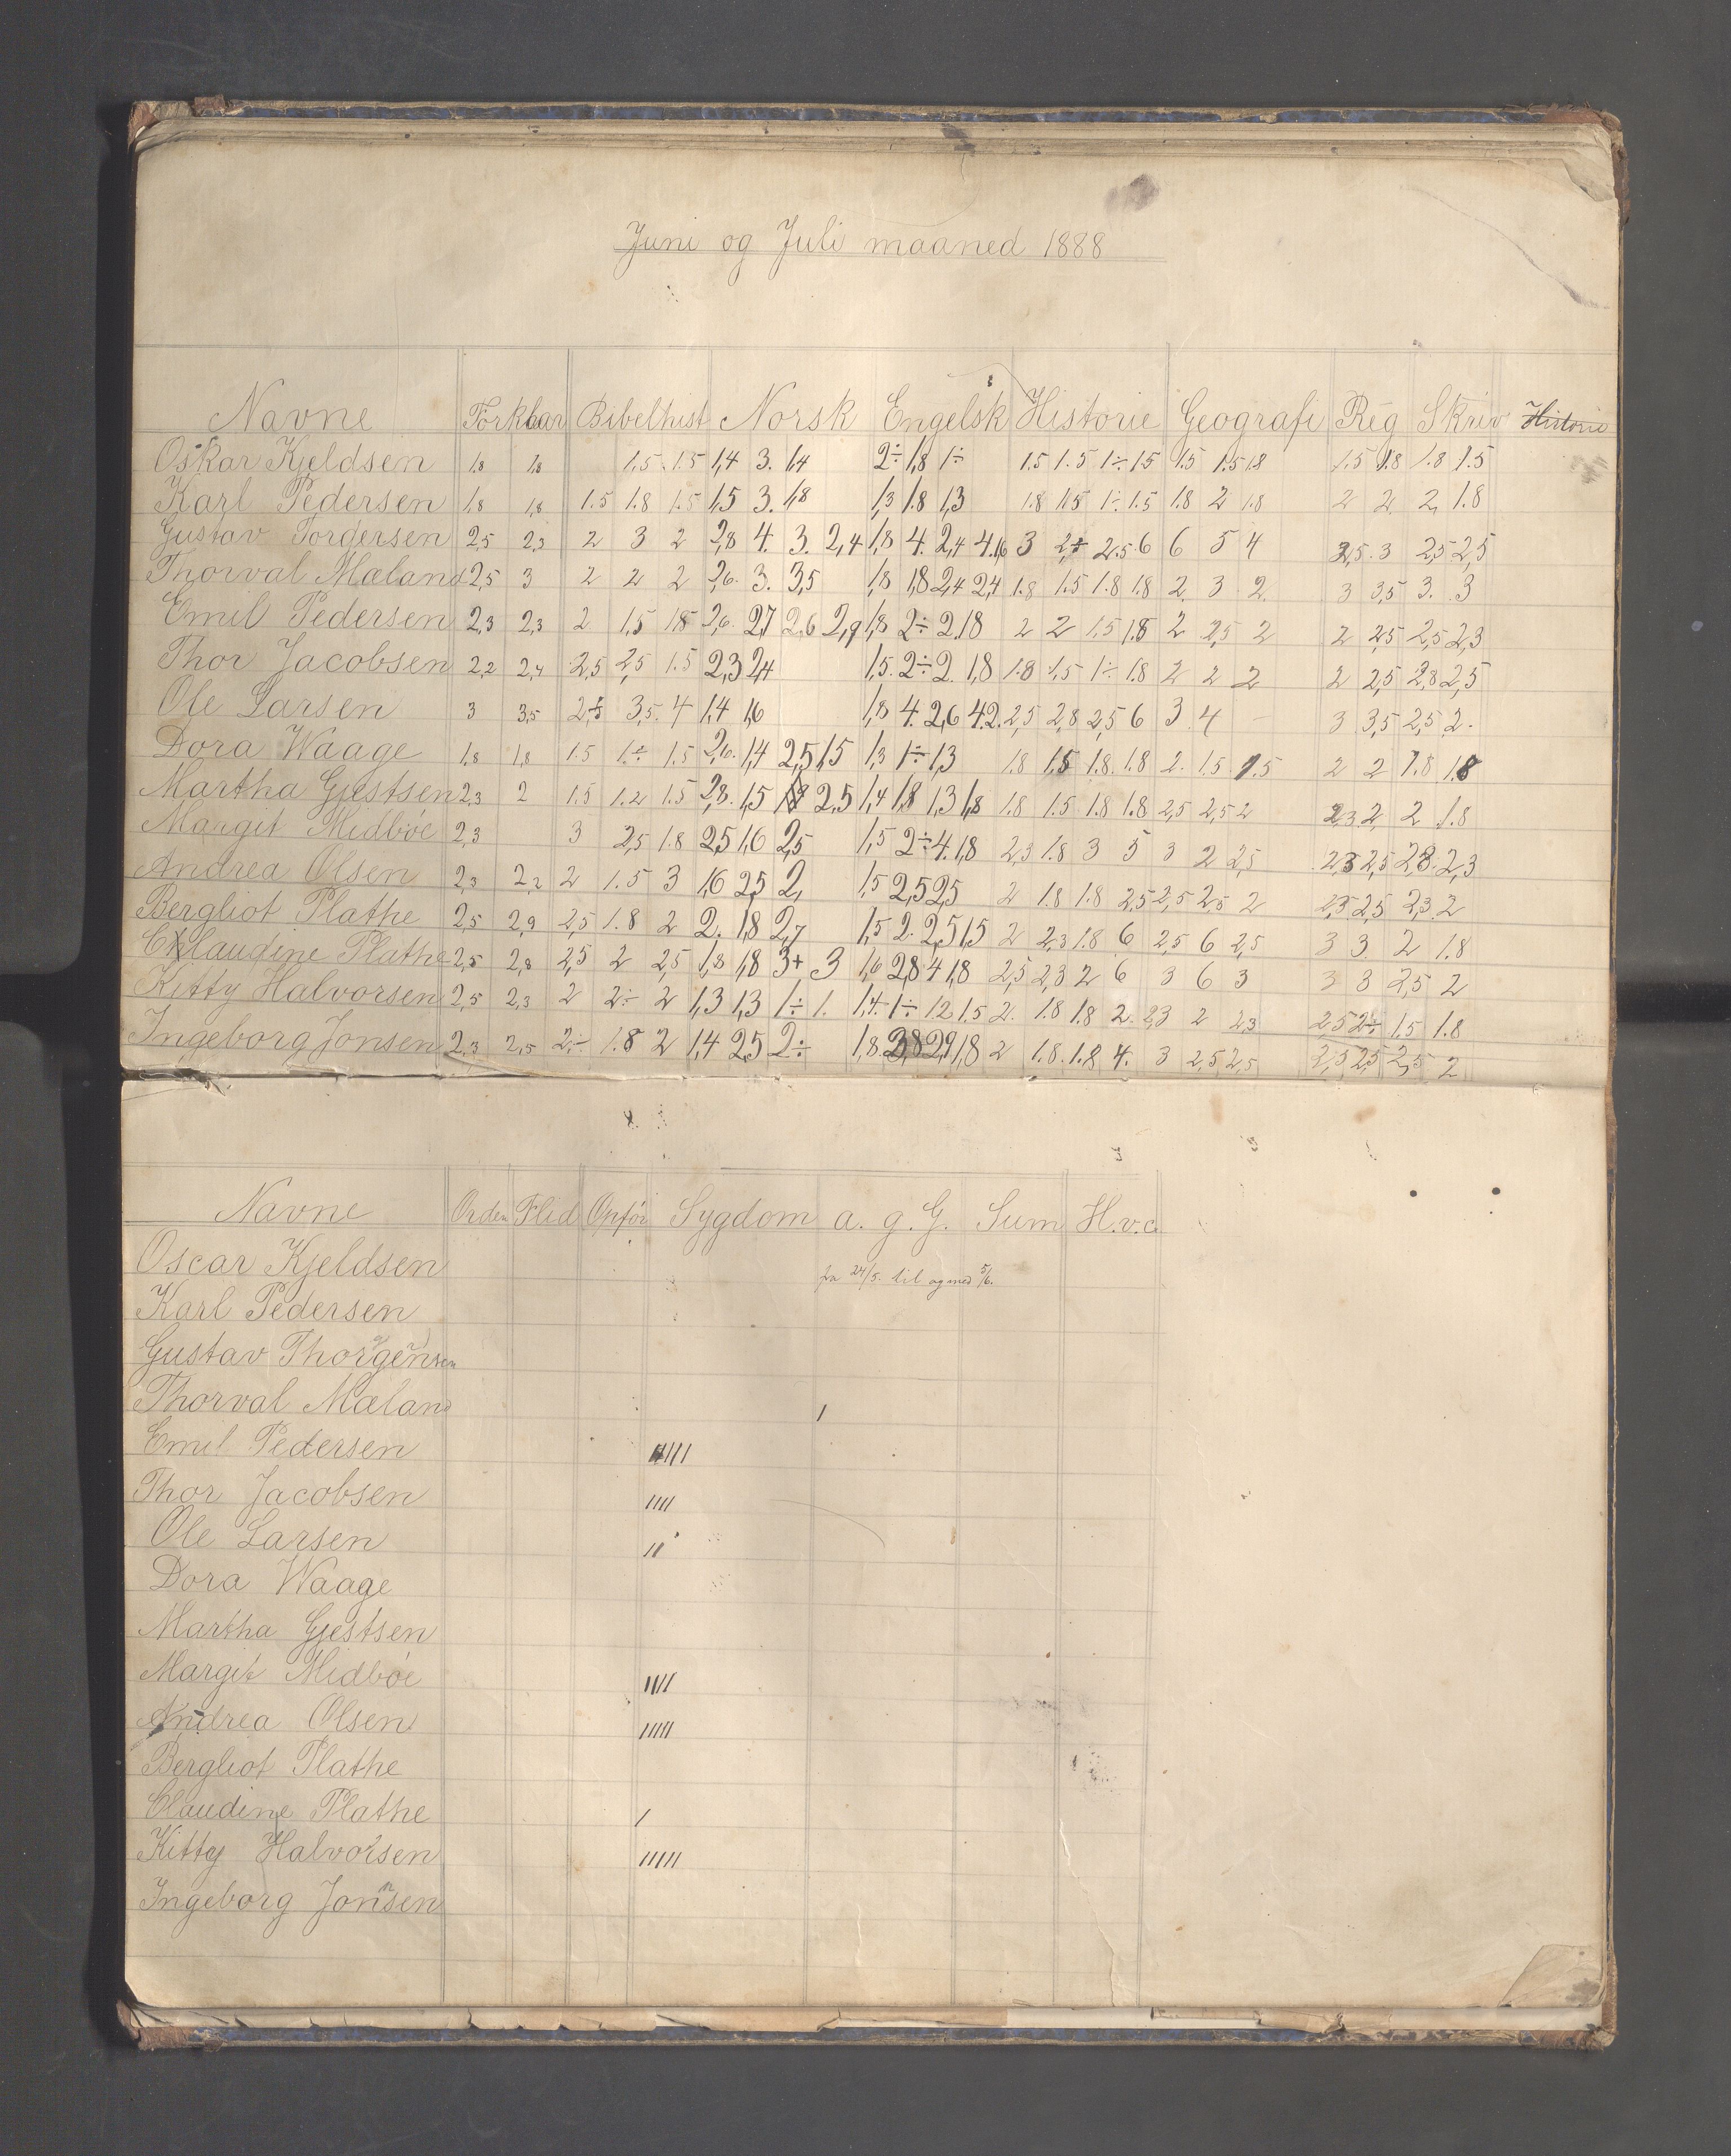 Juni og Juli maaned 1888
Navne Forklar Bibelhist Norsk Engelsk Historie Geografi Reg Skriv Historie
Oskar Kjeldsen 1,8 1,8 1,5 1.5 1,4 3. 1,4 2÷ 1,8 1÷ 1.5 1.5 1÷ 1.5 1.5 1.5 1.8 1.5 1.8 1.8 1.5
Karl Pedersen 1,8 1,8 1.5 1.8 1.5 1,5 3. 1,8 1,3 1.8 1,3 1.8 1.5 1÷ 1.5 1.8 2 1.8 2 2 2 1.8
Gustav Torgersen 2,5 2,3 2 3 2 2,8 4. 3. 2,4 1,8 4. 2,4 4.1,6 3 2.5 6 6 5 4 3 2,5 2,5
Thorval Mæland 2,5 3 2 2 2 2,6. 3. 3,5 1,8 1,8 2,4 2,4 1.8 1.5 1.8 1.8 2. 3 2. 3 3,5 3. 3
Emil Pedersen 2,3 2,3 2. 1,5 1.8 2,6. 2,7 2,6 2,9 1,8 2÷ 2. 1.8 2 2 1.5 1.8 2 2,5 2 2 2,5 2,5 2,3
Thor Jacobsen 2,2 2,4 2,5 2,5 1.5 2,3 2,4 1,5. 2÷ 2. 1,8 1.8 1,5 1÷ 1.8 2 2 2 2 2,5 2,8 2,5
Ole Larsen 3 3,5 3,5. 4 1,4 1,6 1,8 4. 2,6 4.2. 2,5 2,8 2,5 6 3 4 3 3,5 2,5 2.
Dora Waage 1,8 1,8 1.5 1÷ 1.5 2,6. 1,4 2,5 1,5 1,3 1÷ 1,3 1.8 1.5 1.8. 1.8 2. 1.5. 1.5 2 2 1.8 1.8
Martha Gjestsen 2,3 2 1.5 1.2 1.5 2,8. 1,5 2,5 1,4 1,8 1,3 1,8 1.8 1.5 1.8 1.8 2,5 2,5 2 2,3 2, 2 1.8
Margit Midböe 2,3 3 2,5 1.8 2,5 1,6 2,5 1,5 2÷ 4. 1,8 2,3 1.8 3 5 3 2 2,5 2,3 2,5 2,8. 2,3
Andrea Olsen 2,3 2,2 2 1.5 3 1,6 2,5 2, 1,5 2,5 2,5 2 1.8 1.8 2,5 2,5 2,5 2 2,3 2,5 2,3. 2
Bergliot Plathe 2,5 2,9 2,5 1.8 2 2. 1,8 2,7 1,5 2. 2,5 1,5 2 2,3 1.8 6 2,5 6 2,5 3 3. 2 1.8
Claudine Plathe 2,5 2,8 2,5 2 2,5 1,8 1,8 3+ 3 1,6 2,8 4 1,8 2,5 2,3 2 6 3 6 3 3 3 2,5 2
Kitty Halvorsen 2,5 2,3 2 2÷ 2 1,3 1,3 1÷ 1. 1,4. 1÷ 1,2 1.5 2. 1.8 1.8 2. 2,3 2 2,3 2,5 2÷ 1.5 1.8
Ingeborg Jonsen 2,3 2,5 2÷ 1.8 2 1,4 2,5 2÷ 1,8. 2,9 1,8 2 1.8. 1.8 4. 3 2,5 2,5 2,5 2,5 2,5 2
Navne Orden Flid Opför Sygdom a. g. G. Sum H.v.c.
Oscar Kjeldsen fra 24/5. til og med 5/6.
Karl Pedersen
Gustav Thorgersen
Thorval Mæland /
Emil Pedersen /////
Thor Jacobsen ////
Ole Larsen //
Dora Waage
Martha Gjestsen
Margit Midböe ////
Andrea Olsen /////
Bergliot Plathe
Claudine Plathe /
Kitty Halvorsen /////
Ingeborg Jonsen